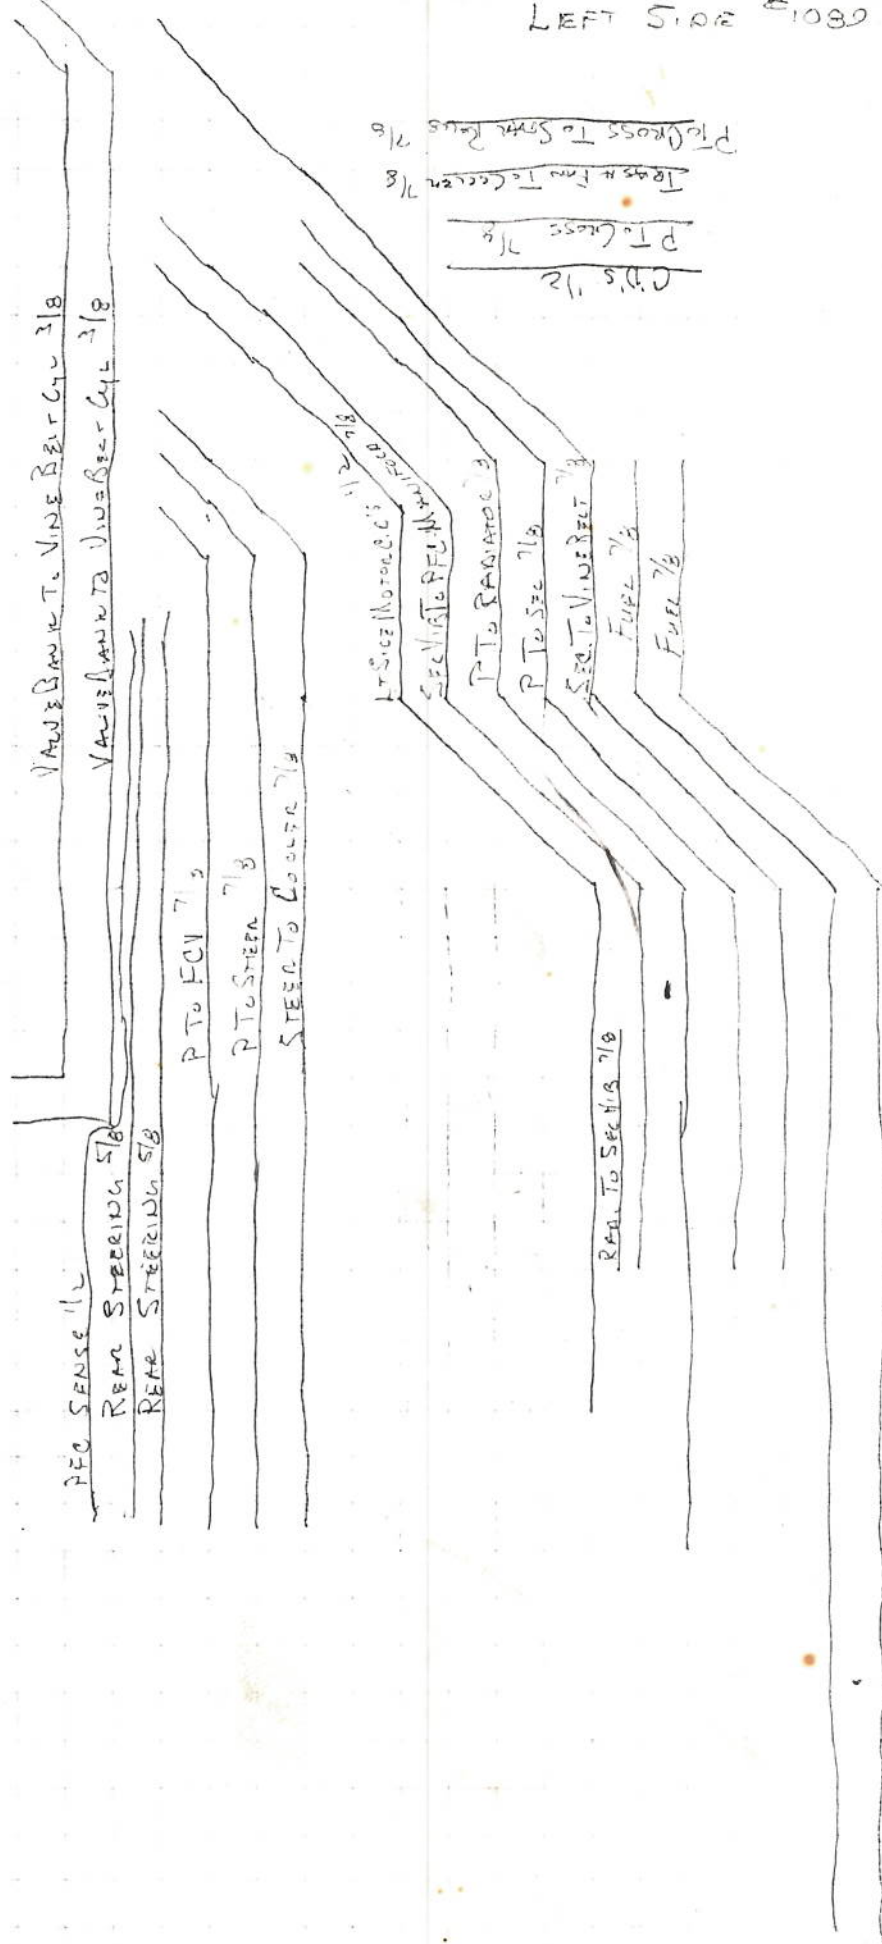 LEFT SIDE #1080
P To CROSS To STAR ROLLS 7/8
TRASH FAN To COOLER 7/8
P To CROSS 7/8
CD'S 1/2
VALVE BANK To VINE BELT CYL 3/8
VALVE BANK TO VINE BELT CYL 3/8
PFC SENSE 1/2
REAR STEERING 5/8
REAR STEERING 5/8
P To FCV 7/8
P To STEER 7/8
STEER TO COOLER 7/8
LT SIDE MOTOR C.D'S 1/2
SEC VIB To PFC MANIFOLD 7/8
P To RADIATOR 7/8
P To SEC 7/8
SEC. To VINE BELT 7/8
FUEL 7/8
FUEL 7/8
RAD. TO SEC VIB 7/8